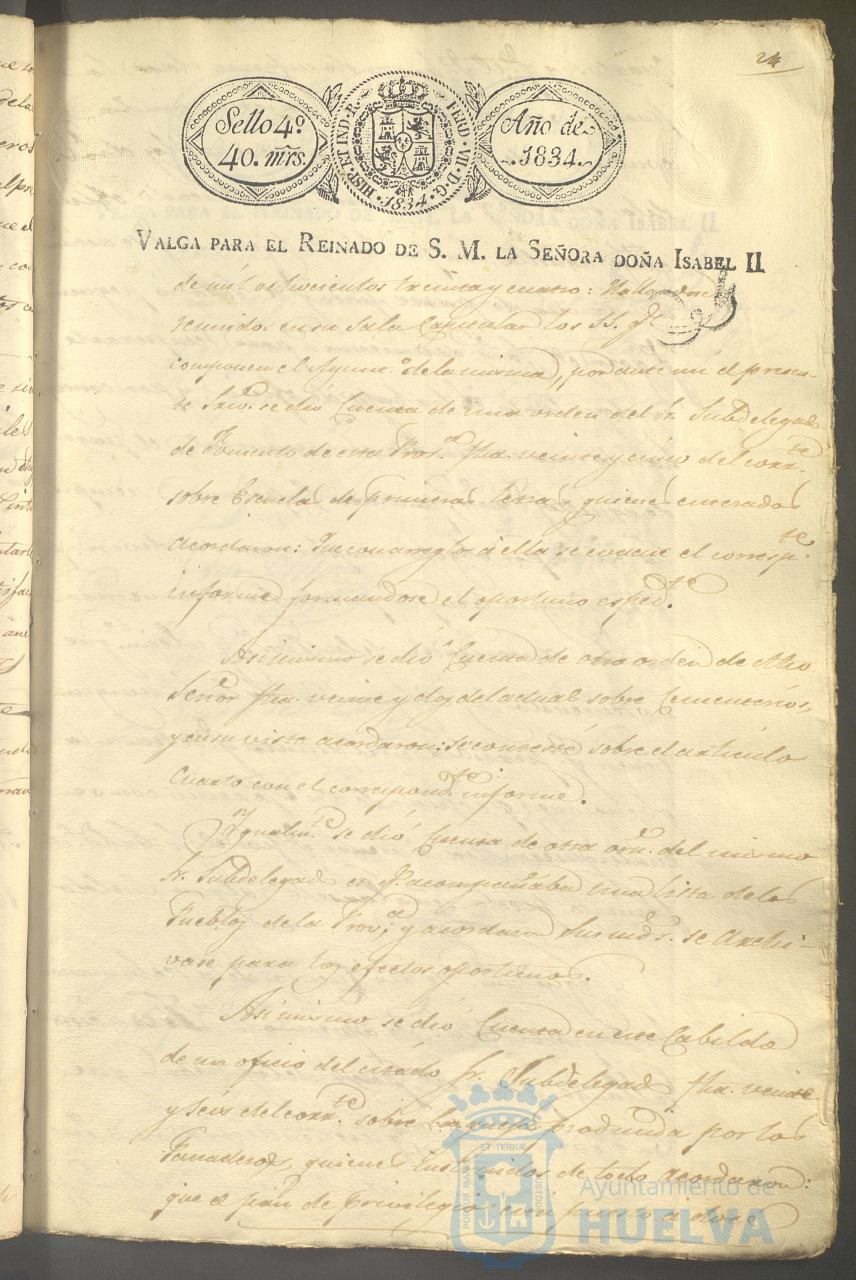 24
Sello 4º
40. mrs.
HISP. ET IND. R. FERD. VII. D. G. 1834
Año de
1834.
VALGA PARA EL REINADO DE S. M. LA SEÑORA DOÑA ISABEL II
de mil ochocientos treinta y cuatro: Hallandose
reunidos en su Sala Capitular los SS. qe.
componen el Ayuntº. de la misma, por ante mi el presen-
te Srio. se dió Cuenta de una orden del Sr. Subdelegado
de Fomento de esta Prova. fha. veinte y cinco del corrte.
sobre Escuelas de primeras letras, quienes enterados
acordaron: Que con arreglo á ella se evacue el correspte.
informe formandose el oportuno expedte.
Asimismo se dió Cuenta de otra orden de dho
Señor fha. veinte y dos del actual sobre Cementerios,
y en su vista acordaron: se conteste sobre el articulo
Cuarto con el correspondte. informe.
Ygualmte. se dió Cuenta de otra orn. del mismo
Sr. Subdelegado en qe. acompañaba una lista de los
Pueblos de la Prova., y acordaron Sus mds. se Archi-
vase para los efectos oportunos.
Asimismo se dió Cuenta en este Cabildo
de un oficio del citado Sr. Subdelegado fha. veinte
y seis del corrte. sobre la queja producida por los
Panaderos, quienes instruidos de todo acordaron:
que el pan de Privilegio
PORTUS MARIS ET TERRAE CUSTODIA
Ayuntamiento de
HUELVA